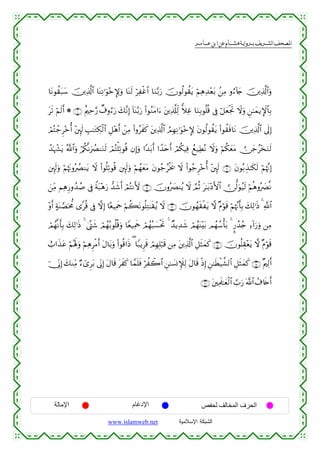 المصحف الشريف برواية هشام عن ابن عامر
وَٱلَّذِينَ جَآءُو مِنۢ بَعْدِهِمْ يَقُولُونَ رَبَّنَا ٱغْفِرْ لَنَا وَلِإِخْوَٰنِنَا ٱلَّذِينَ سَبَقُونَا
بِٱلْإِيمَٰنِ وَلَا تَجْعَلْ فِى قُلُوبِنَا غِلًّا لِّلَّذِينَ ءَامَنُوا۟ رَبَّنَآ إِنَّكَ رَءُوفٌ رَّحِيمٌ ۝ * أَلَمْ تَرَ
إِلَى ٱلَّذِينَ نَافَقُوا۟ يَقُولُونَ لِإِخْوَٰنِهِمُ ٱلَّذِينَ كَفَرُوا۟ مِنْ أَهْلِ ٱلْكِتَٰبِ لَئِنْ أُخْرِجْتُمْ
لَنَخْرُجَنَّ مَعَكُمْ وَلَا نُطِيعُ فِيكُمْ أَحَدًا أَبَدًا وَإِن قُوتِلْتُمْ لَنَنصُرَنَّكُمْ وَٱللَّهُ يَشْهَدُ
إِنَّهُمْ لَكَٰذِبُونَ ۝ لَئِنْ أُخْرِجُوا۟ لَا يَخْرُجُونَ مَعَهُمْ وَلَئِن قُوتِلُوا۟ لَا يَنصُرُونَهُمْ وَلَئِن
نَّصَرُوهُمْ لَيُوَلُّنَّ ٱلْأَدْبَٰرَ ثُمَّ لَا يُنصَرُونَ ۝ لَأَنتُمْ أَشَدُّ رَهْبَةً فِى صُدُورِهِم مِّنَ
ٱللَّهِ ذَٰلِكَ بِأَنَّهُمْ قَوْمٌ لَّا يَفْقَهُونَ ۝ لَا يُقَٰتِلُونَكُمْ جَمِيعًا إِلَّا فِى قُرًى مُّحَصَّنَةٍ أَوْ
مِن وَرَآءِ جُدُرٍۭ بَأْسُهُم بَيْنَهُمْ شَدِيدٌ تَحْسَبُهُمْ جَمِيعًا وَقُلُوبُهُمْ شَتَّىٰ ذَٰلِكَ بِأَنَّهُمْ
قَوْمٌ لَّا يَعْقِلُونَ ۝ كَمَثَلِ ٱلَّذِينَ مِن قَبْلِهِمْ قَرِيبًا ذَاقُوا۟ وَبَالَ أَمْرِهِمْ وَلَهُمْ عَذَابٌ
أَلِيمٌ ۝ كَمَثَلِ ٱلشَّيْطَٰنِ إِذْ قَالَ لِلْإِنسَٰنِ ٱكْفُرْ فَلَمَّا كَفَرَ قَالَ إِنِّى بَرِىٓءٌ مِّنكَ إِنِّىٓ
أَخَافُ ٱللَّهَ رَبَّ ٱلْعَٰلَمِينَ ۝
الحرف المخالف لحفص
الإدغام
الإمالة
الشبكة الإسلامية
www.islamweb.net